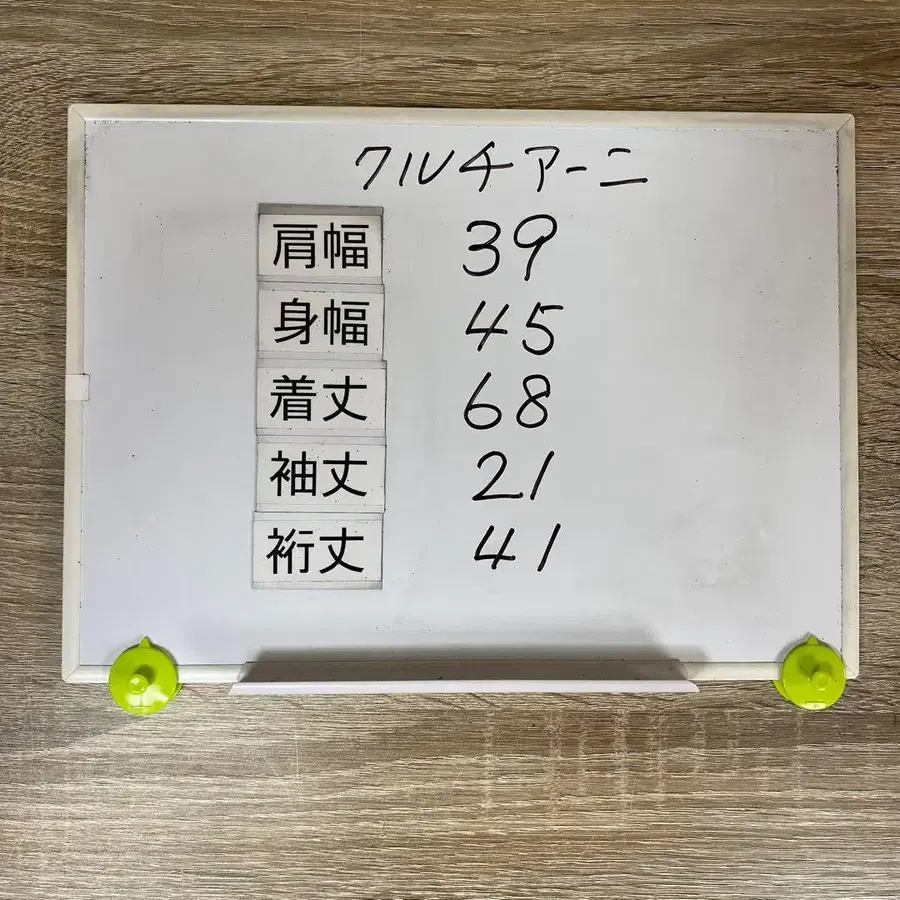 クルチアーニ
肩幅 39
身幅 45
着丈 68
袖丈 21
裄丈 41